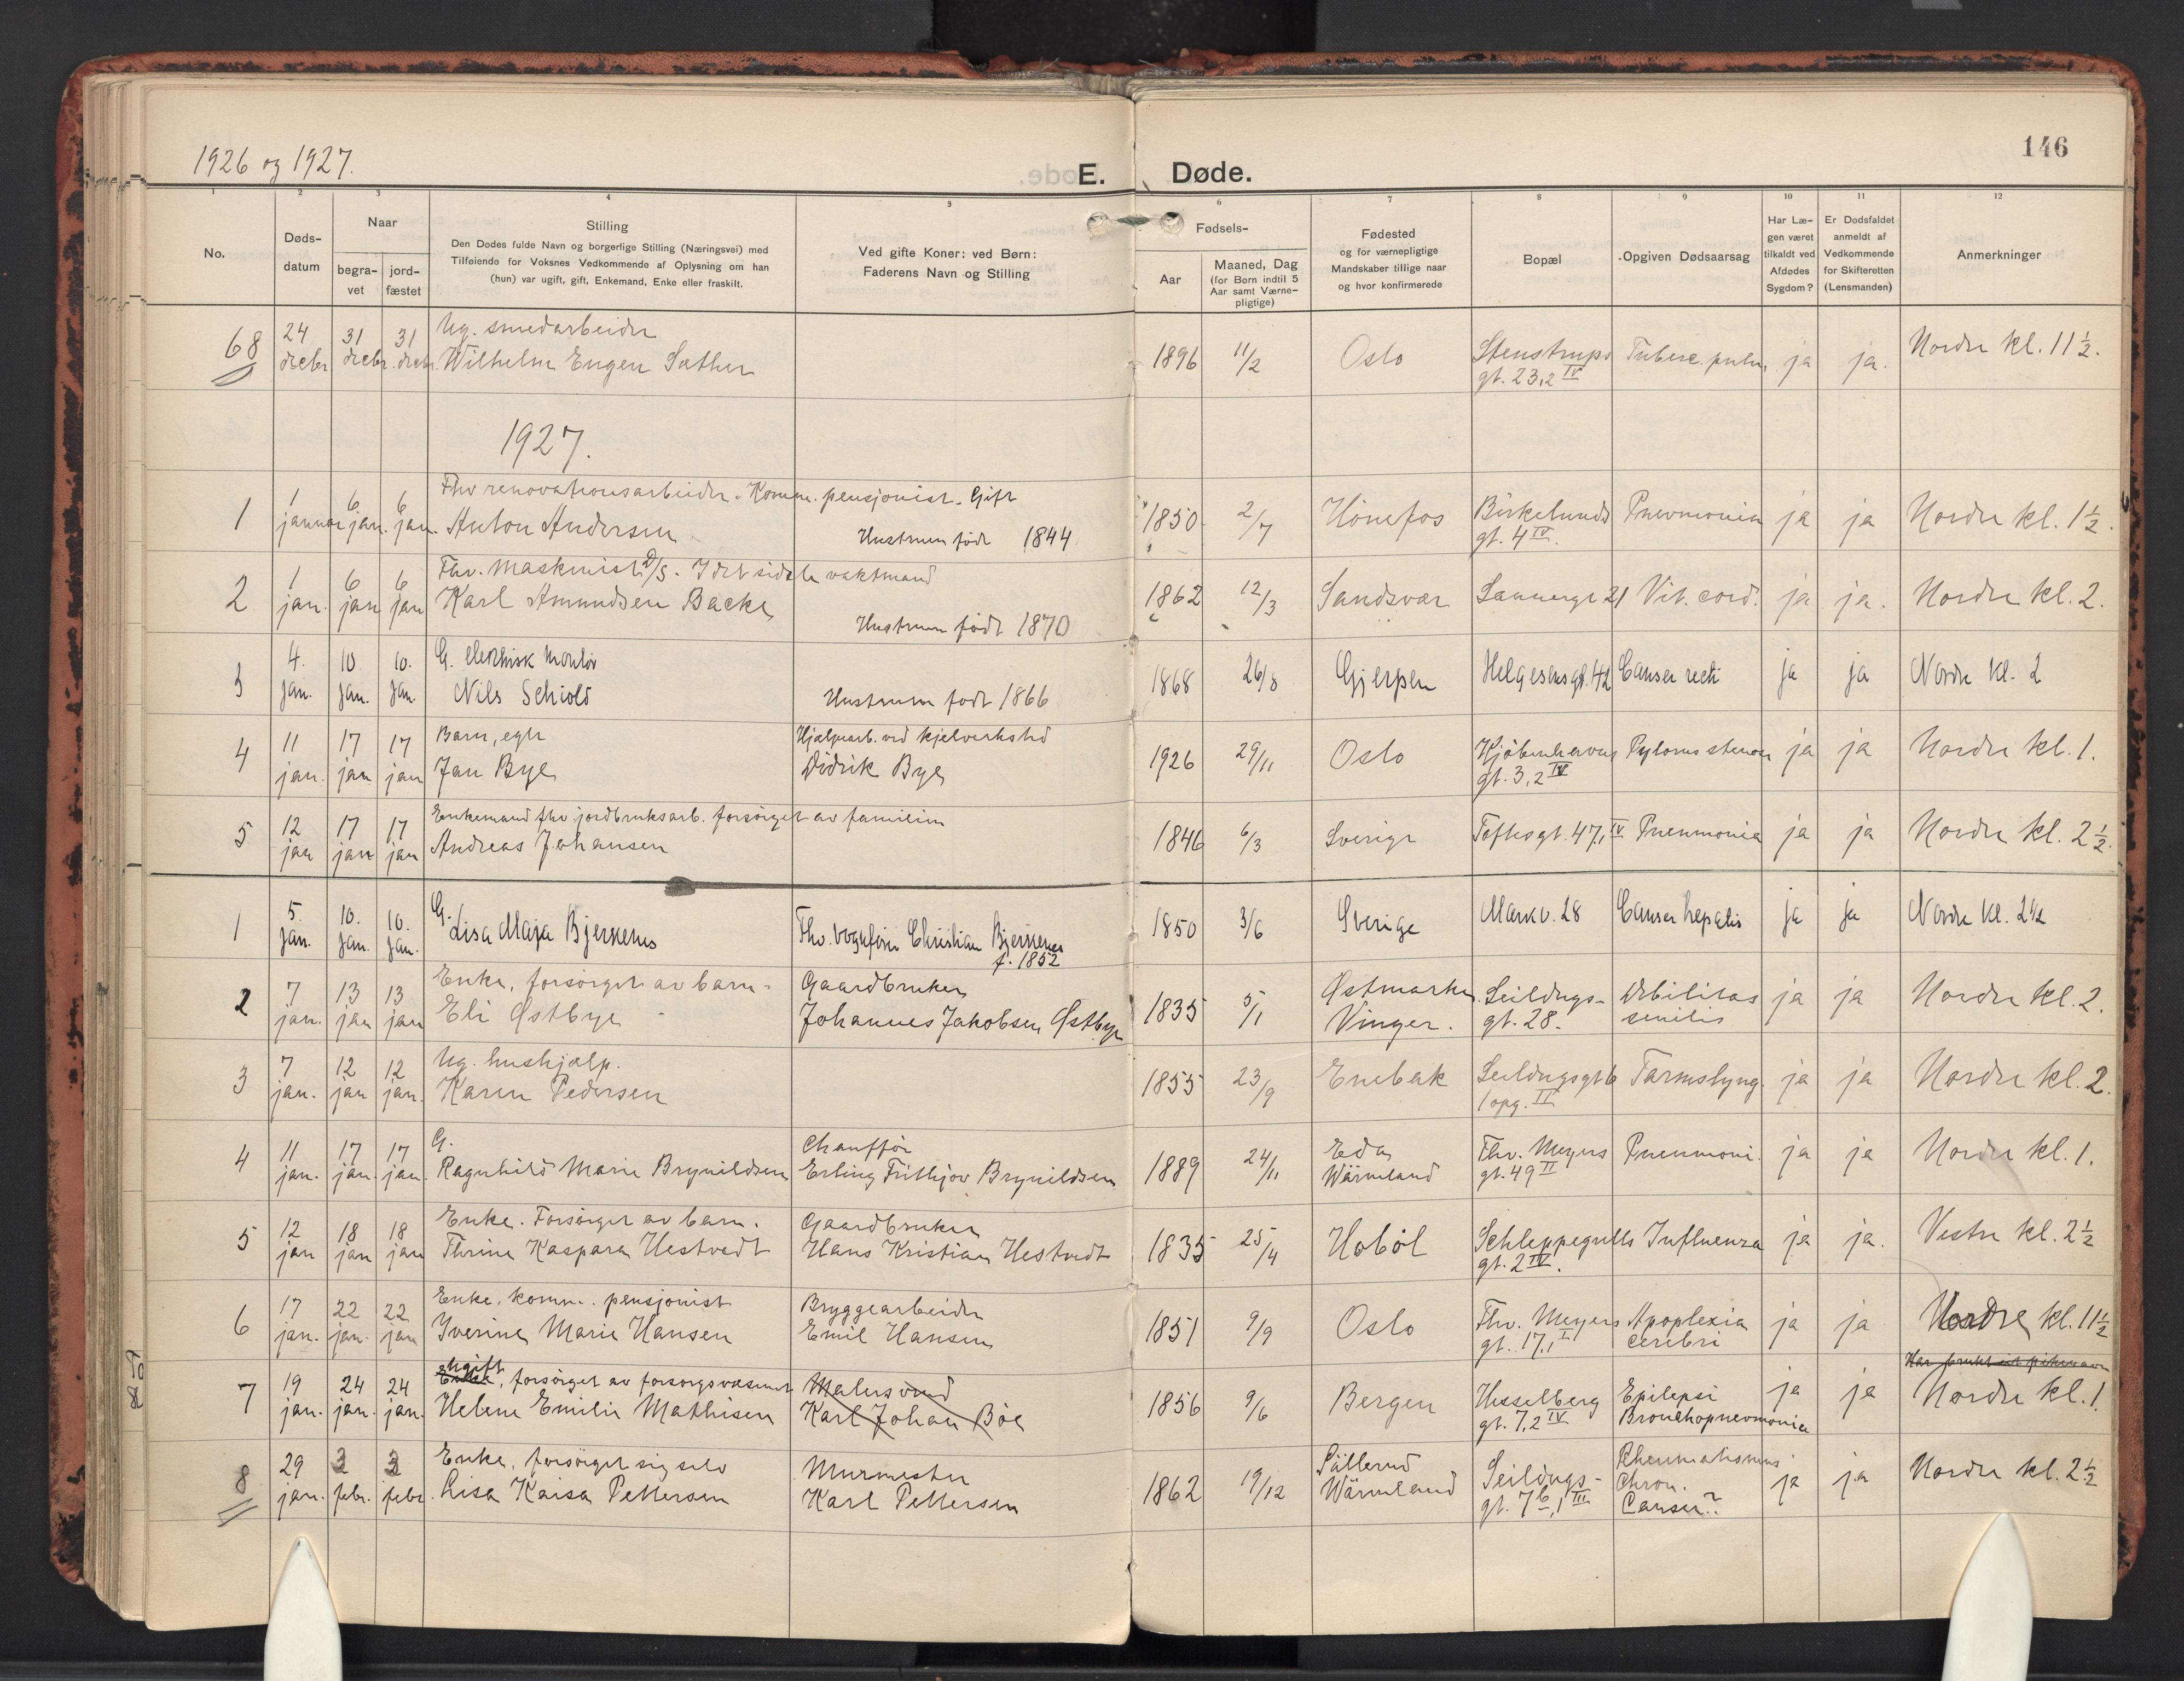 1926 og 1927.
E. Døde.
146
1 2 3 4 5 6 7 8 9 10 11 12
No.
Døds-
datum
Naar
begra-
vet
jord-
fæstet
Stilling
Den Dødes fulde Navn og borgerlige Stilling (Næringsvei) med
Tilføiende for Voksnes Vedkommende af Oplysning om han
(hun) var ugift, gift, Enkemand, Enke eller fraskilt.
Ved gifte Koner: ved Børn:
Faderens Navn og Stilling
Fødsels-
Aar
Maaned, Dag
(for Børn indtil 5
Aar samt Værne-
pligtige)
Fødested
og for værnepligtige
Mandskaber tillige naar
og hvor konfirmerede
Bopæl
Opgiven Dødsaarsag
Har Læ-
gen været
tilkaldt ved
Afdødes
Sygdom?
Er Dødsfaldet
anmeldt af
Vedkommende
for Skifteretten
(Lensmanden)
Anmerkninger
68 24 decbr 31 decbr. 31 decbr. Ug. smedarbeider
Wilhelm Eugen Sæther
1896 11/2 Oslo Stenstrups
gt. 23,2 IV
Tuberc. pulm. ja ja. Nordre kl. 11 1/2.
1927.
1 1 januar 6 jan. 6 jan. Fhv renovationsarbeider. Komm. pensjonist. Gift
Anton Andersen Hustruen født 1844
1850 2/7 Hönefos Birkelunds
gt. 4 IV.
Pnevmonia ja ja Nordre kl. 1 1/2.
2 1 jan. 6 jan 6 jan Fhv. Maskinist D/S. I det sidste vaktmand
Karl Amundsen Backe
Hustruen født 1870
1862 12/3 Sandsvær Sannergt 21 Vit. cord. ja ja. Nordre kl. 2.
3 4. jan. 10. jan. 10. jan. G. elektrisk montör
Nils Schiold Hustruen født 1866
1868 26/8 Gjerpen Helgesensgt. 42 Canser recti ja ja Nordre kl. 2
4 11 jan. 17 jan 17 jan Barn, egte
Jan Bye
Hjælpearb. ved kjelverksted
Didrik Bye
1926 29/11 Oslo Kjöbenhavns
gt. 3,2 IV
Pylorus stenose ja ja Nordre kl. 1.
5 12 jan 17 jan 17 jan Enkemand fhv jordbruksarb. forsörget av familien
Andreas Johansen
1846 6/3 Sverige Toftesgt. 47,1 IV Pneumonia ja ja Nordre kl. 2 1/2.
1 5. jan. 10. jan. 10. jan. G.
Lisa Maja Bjerkenes
Fhv. vognfører Christian Bjerkenes
f. 1852
1850 3/6 Sverige Markv. 28 Canser hepatis ja ja Nordre kl. 2 1/2
2 7 jan. 13 jan 13 jan Enke, forsörget av barn.
Eli Østbye
Gaardbruker
Johannes Jakobsen Østbye
1835 5/1 Østmarken
Vinger.
Seildugs-
gt. 28.
Debilitas
senilis
ja ja Nordre kl. 2.
3 7 jan. 12 jan 12 jan. Ug. hushjælp.
Karen Pedersen
1855 23/9 Enebak Seildugsgt 6
1 opg. II
Tarmslyng. ja ja Nordre kl. 2.
4 11 jan. 17 jan. 17 jan. G.
Ragnhild Marie Brynildsen
Chauffør
Erling Frithjov Brynildsen
1889 24/11 Eda
Wärmland
Thv. Meyers
gt. 49 II
Pneumoni. ja ja Nordre kl. 1.
5 12 jan 18 jan 18 jan Enke. Forsörget av barn.
Thrine Kaspara Hestvedt
Gaardbruker
Hans Kristian Hestvedt
1835 25/4 Haböl Schleppegrells
gt. 2 IV.
Influenza ja ja. Vestre kl. 2 1/2
6 17 jan. 22 jan. 22 jan Enke. komm. pensjonist
Iverine Marie Hansen
Bryggearbeider
Emil Hansen
1851 9/9 Oslo Thv. Meyers
gt. 17,1 I
Apoplexia
cerebri
ja ja Nordre kl. 11 1/2
Har brukt sit pikenavn
7 19 jan. 24 jan. 24 jan. Ugift
Enke, forsörget av forsorgsvæsenet
Helene Emilie Mathisen
Malersvend
Karl Johan Böe
1856 9/6 Bergen Hesselberg
gt. 7,2 IV
Epilepsi
Bronchopnevmonia
ja ja Nordre kl. 1.
8 29 jan. 3 febr. 3 febr. Enke, forsörget sig selv
Lisa Kaisa Pettersen
Murmester
Karl Pettersen
1862 19/12 Sällerud
Wärmland
Seildugs-
gt. 7 b, 1 III
Rheumatismus
chron.
Canser?
ja ja Nordre kl. 2 1/2